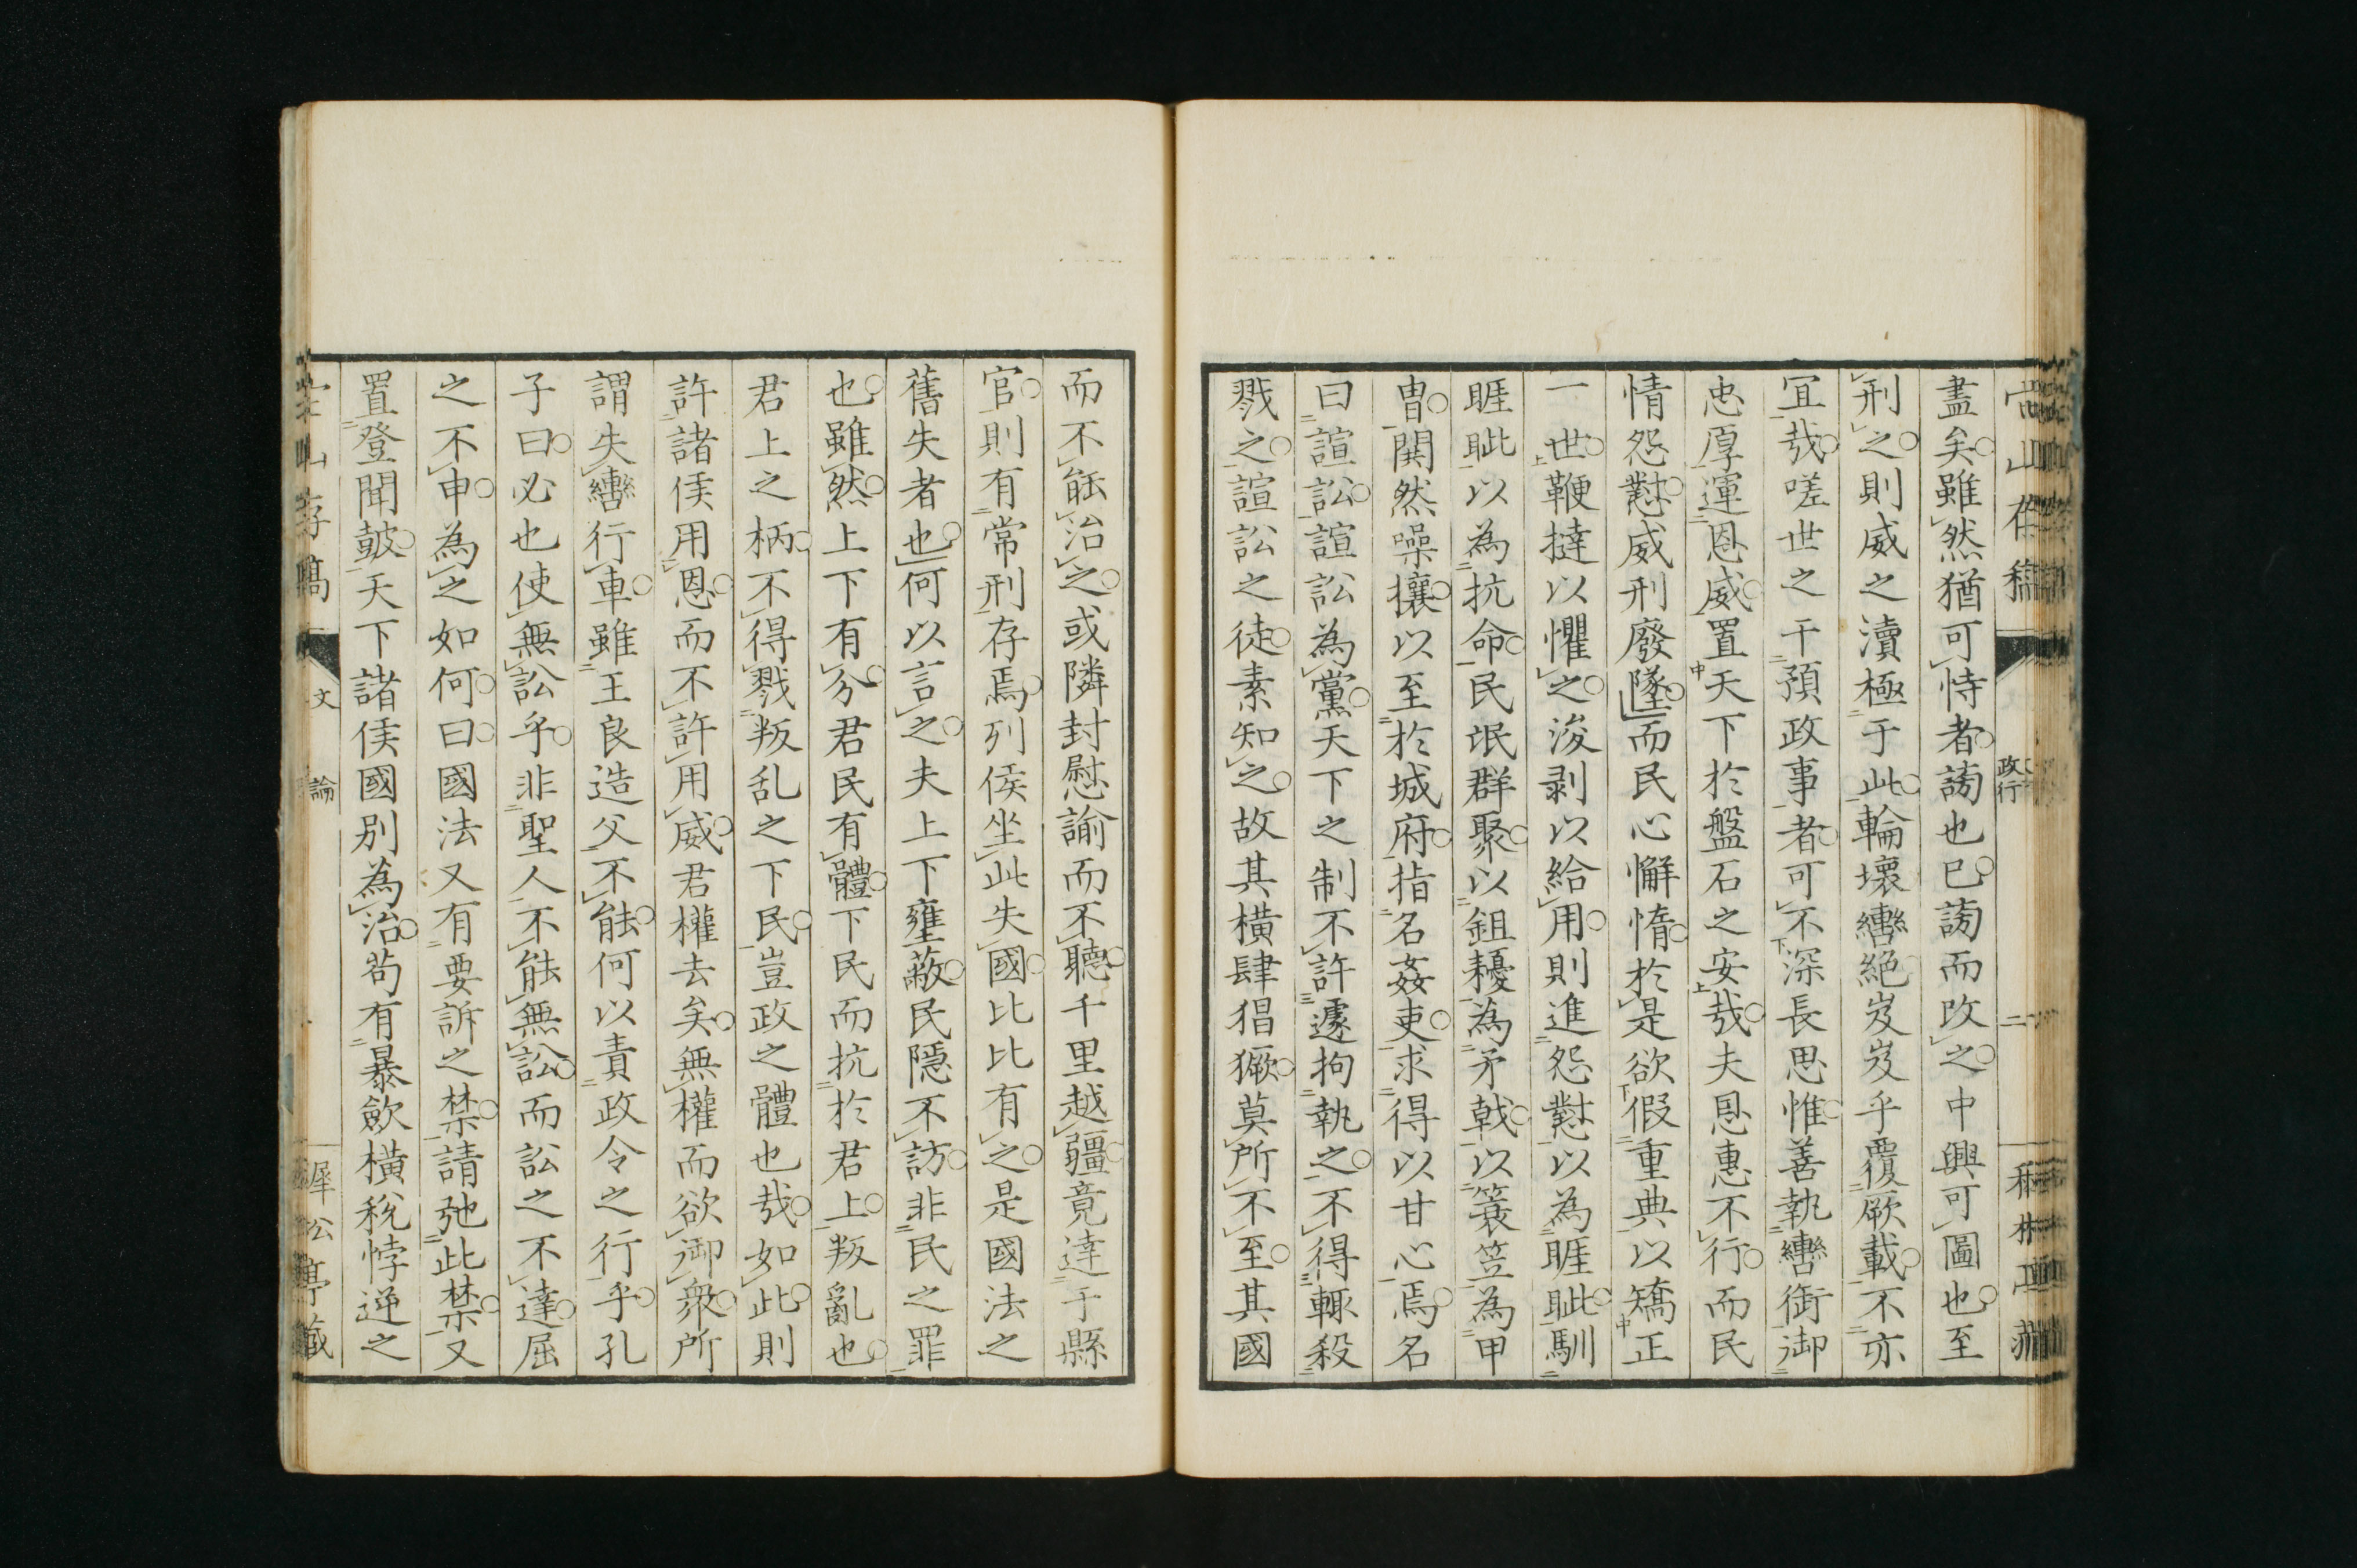 盡矣雖然猶可恃者謗也已謗而改之中興可圖也至
刑之則威之瀆極于此輪壞轡絕岌岌乎覆厥載不亦
宜哉嗟世之干預政事者可不深長思惟善執轡銜御
忠厚運恩威置天下於盤石之安哉夫恩惠不行而民
情怨懟威刑廢墜而民心懈惰於是欲假重典以矯正
一世鞭撻以懼之浚剥以給用則進怨懟以為睚眦馴
睚眦以為抗命民氓群聚以鉏耰為矛戟以簑笠為甲
冑鬨然噪攘以至於城府指名姦吏求得以甘心焉名
曰諠訟諠訟為黨天下之制不許遽拘執之不得輒殺
戮之諠訟之徒素知之故其橫肆猖獗莫所不至其國
而不能治之或隣封慰諭而不聽千里越疆竟達于縣
官則有常刑存焉列侯坐此失國比比有之是國法之
舊失者也何以言之夫上下壅蔽民隱不訪非民之罪
也雖然上下有分君民有體下民而抗於君上叛亂也
君上之柄不得戮叛乱之下民豈政之體也哉如此則
許諸侯用恩而不許用威君權去矣無權而欲御衆所
謂失轡行車雖王良造父不能何以責政令之行乎孔
子曰必也使無訟乎非聖人不能無訟而訟之不達屈
之不申為之如何曰國法又有要訴之禁請弛此禁又
置登聞皷天下諸侯國別為治苟有暴斂橫稅悖逆之
文
論
二
政行